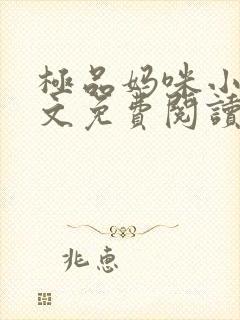 極品妈咪小
文免費閱讀
兆惠